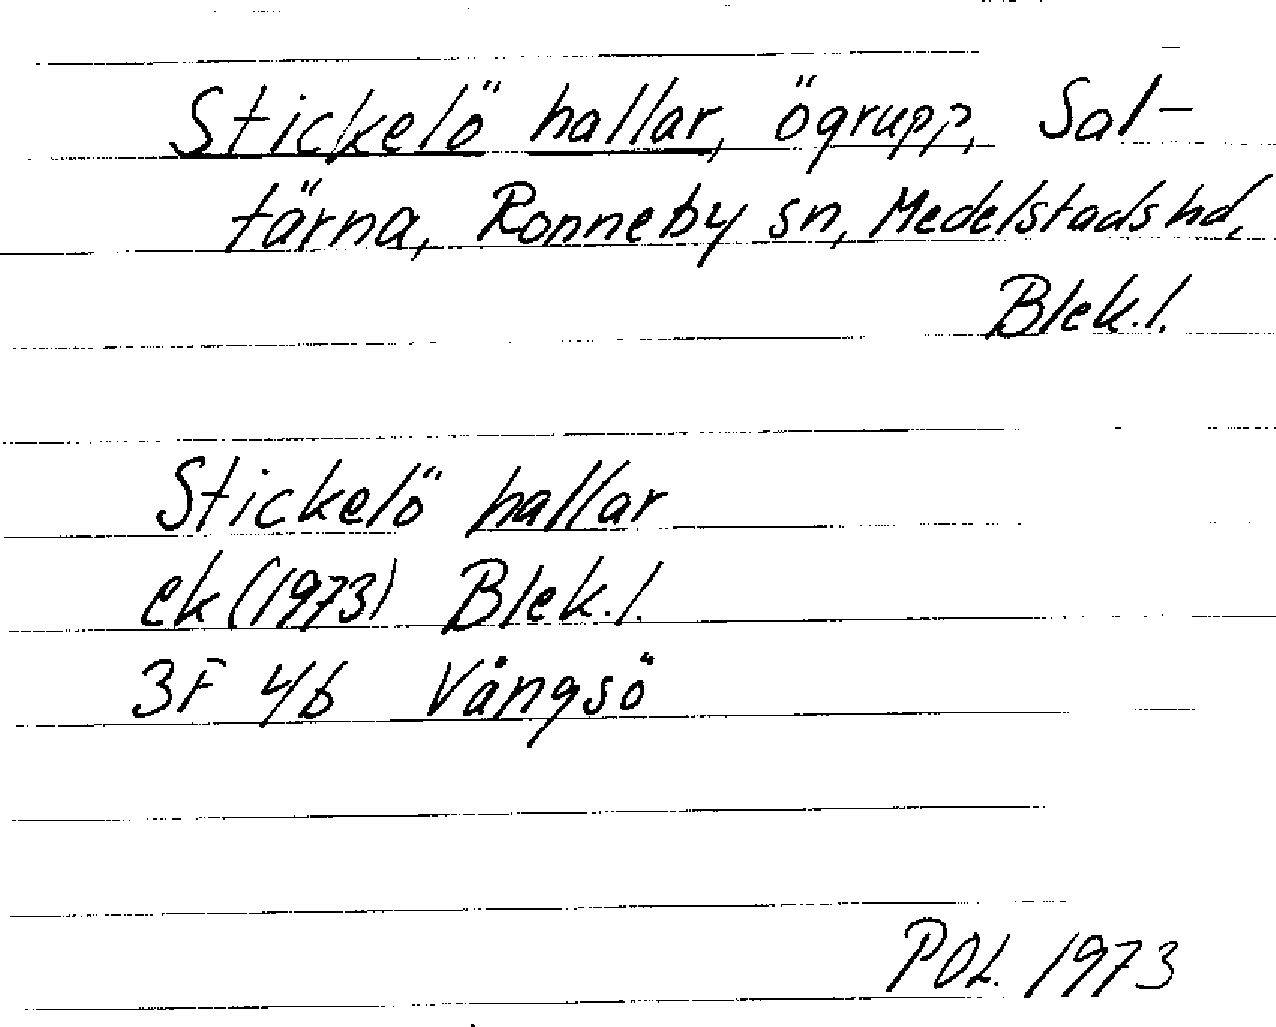 Stickelö hallar, ögrupp, Sal-
tärna, Ronneby sn, Medelstads hd,
Blek.l.
Stickelö hallar
ek (1973) Blek.l.
3F 4b Vångsö
POL. 1973